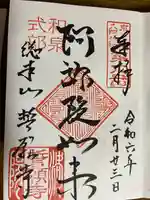 奉拝
令和六年
二月廿三日
阿弥陀如来
和泉
式部
総本山 誓願寺